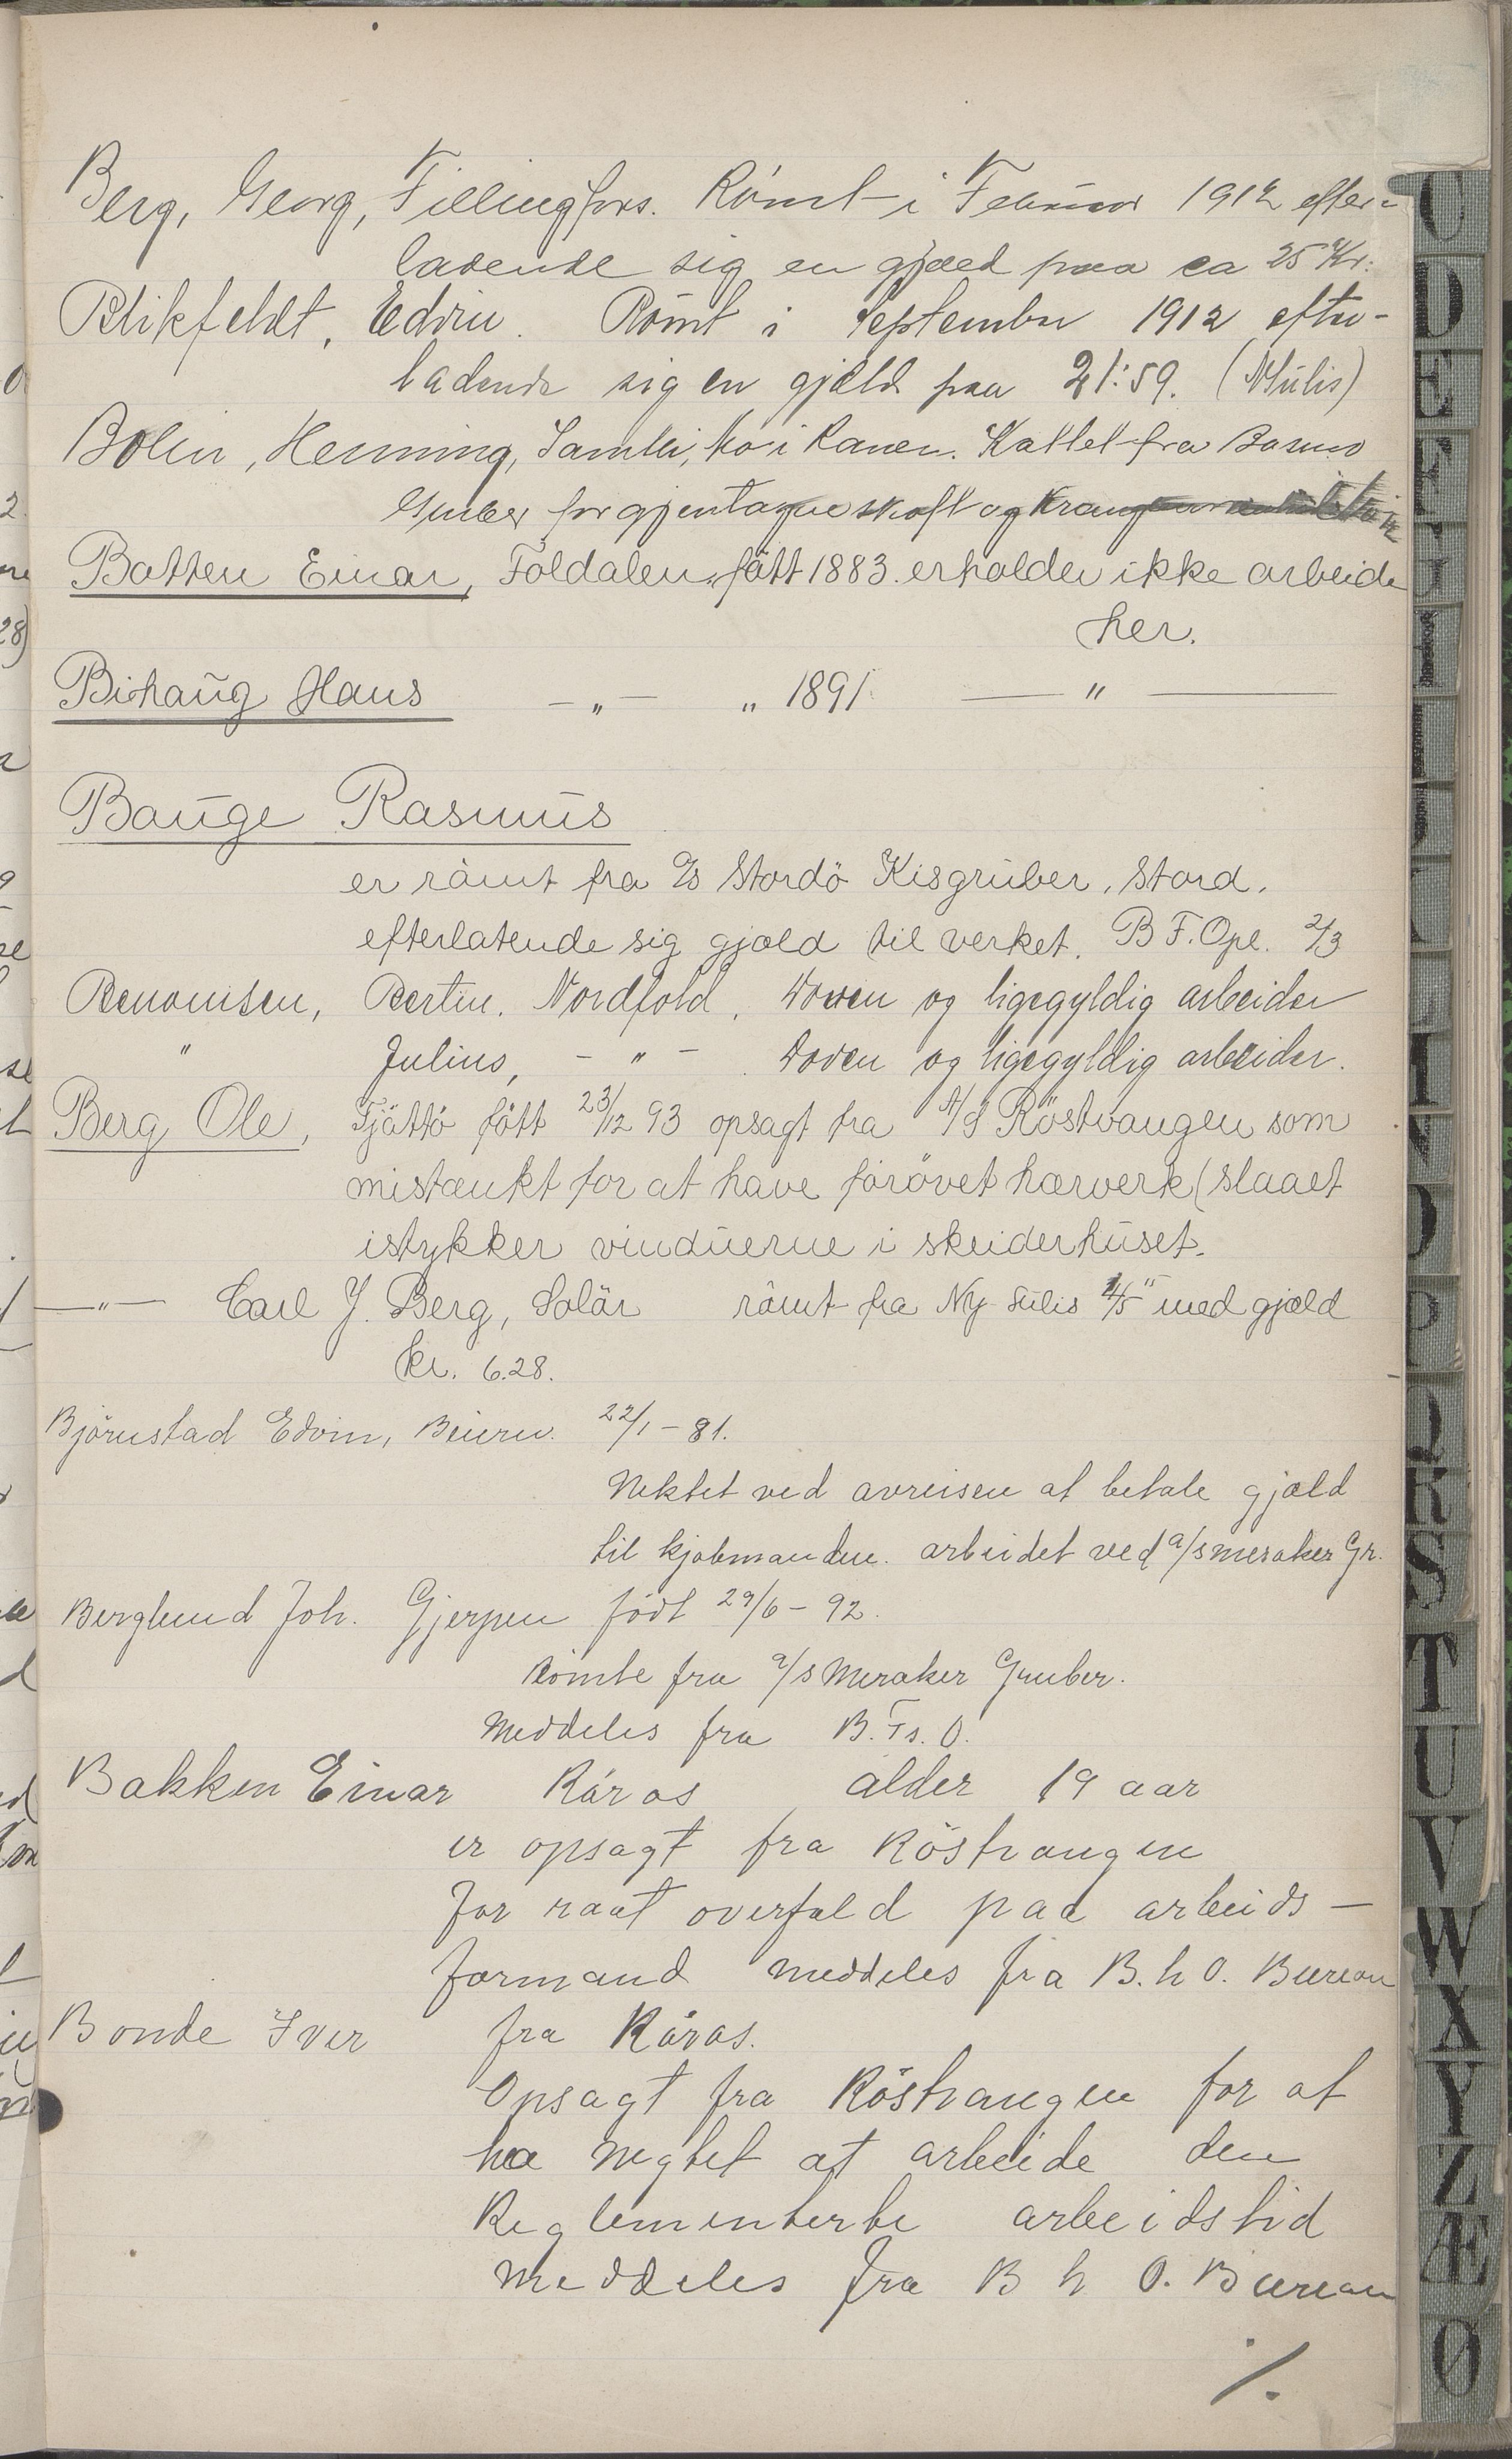 Berg, Georg, Fillingfors. Rømt i Februar 1912 efter-
ladende sig en gjæld paa ca 25 Kr.
Blikfeldt, Edvin. Rømt i September 1912 efter-
ladende sig en gjæld paa 21:59. (NSulis)
Bolin, Henning, Mo i Ranen. Kastet fra Basmo
Gruber for gjentagne skoft og
Botten Einar, Foldalen, født 1883. erholder ikke arbeide
her.
Bihaug Hans -"- " 1891 — " —
Bauge Rasmus
er rømt fra A/S Stordö Kisgruber, Stord.
efterlatende sig gjæld til verket. B.F. Opl. 2/3
Benonisen, Bertin. Nordfold. Doven og ligegyldig arbeider
" Julius, - " - . Doven og ligegyldig arbeider.
Berg Ole, Tjöttö född 23/12 93 opsagt fra A/S Röstvangen som
mistænkt for at have forövet hærverk (slaaet
istykker vinduerne i skeiderhuset.
—"— Carl J. Berg, Solör römt fra Ny-Sulis med gjæld
kr. 6.28.
Björnstad Edvin, Beiern. 22/1-81.
Nektet ved avreisen at betale gjæld
til kjöbmanden. arbeidet ved a/s meraker Gr.
Berglund Joh. Gjerpen född 29/6-92.
Römte fra a/s Meraker Gruber.
Meddeles fra B.Ts.O.
Bakken Einar Röros alder 19 aar
er opsagt fra Röstvangen
for raat overfald paa arbeids-
formand meddeles fra B.h O. Bureau
Bonde Iver fra Röros.
Opsagt fra Röstvangen for at
ha negtet at arbeide den
Reglementerte arbeidstid
meddeles fra B h O. Bureau
%
C
D
E
F
G
P
R
S
T
U
V
W
X
Y
Z
Æ
Ø